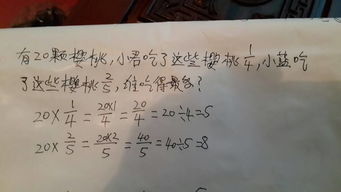 有20颗樱桃,小君吃了这些樱桃1/4,小蓝吃
了这些樱桃2/5,谁吃得最多?
20×1/4=20×1/4=20/4=20÷4=5
20×2/5=20×2/5=40/5=40÷5=8